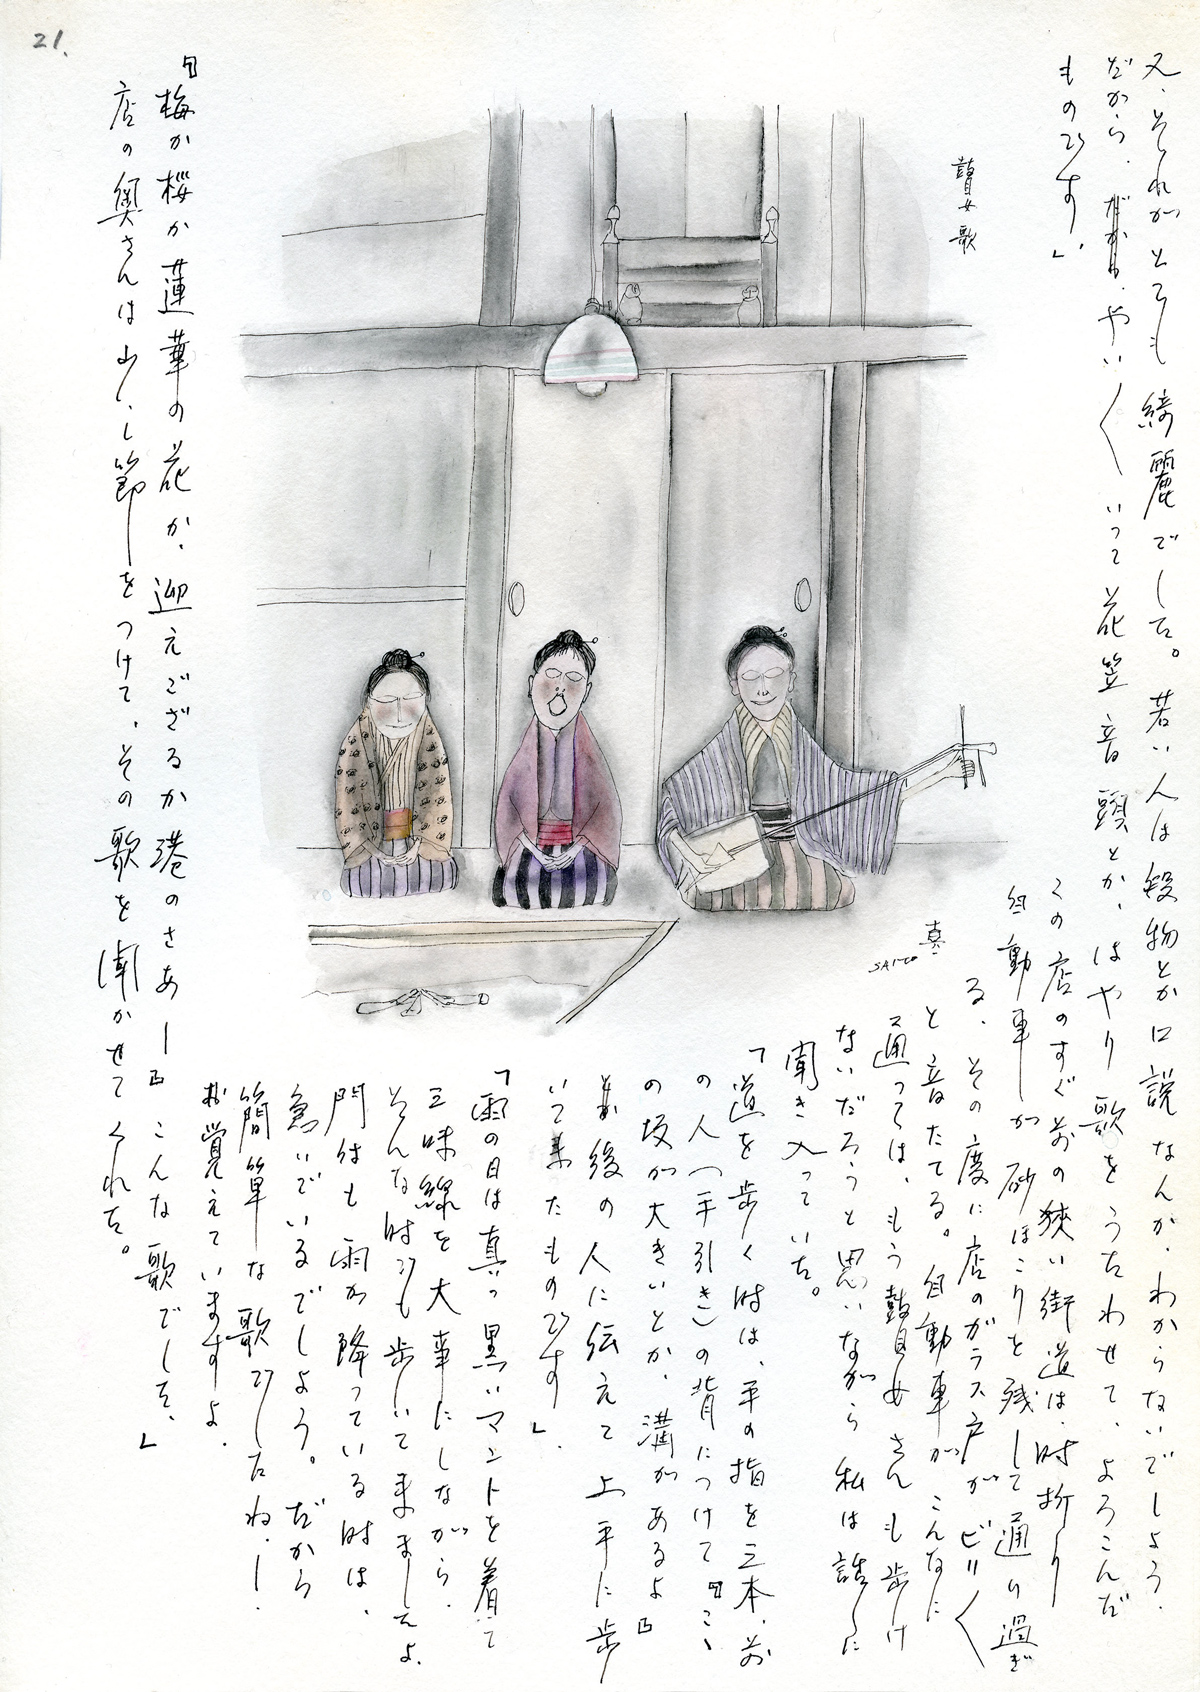 21.
又、それがとても綺麗でした。若い人は段物とか口説なんか、わからないでしょう。
だから、やい〱いって花笠音頭とか、はやり歌をうたわせて、よろこんだ
ものです」。
瞽女歌
この店のすぐ前の狭い街道は、時折り
自動車が砂ぼこりを残して通り過ぎ
る、その度に店のガラス戸がビリ〱
と音たてる。自動車がこんなに
通っては、もう瞽女さんも歩け
ないだろうと思いながら私は話に
聞き入っていた。
「道を歩く時は、手の指を三本、前
の人(手引き)の背につけて『ここ
の坂が大きいとか、溝があるよ』
後の人に伝えて上手に歩
いて来たものです」。
「雨の日は真っ黒いマントを着て
三味線を大事にしながら、
そんな時でも歩いてましたよ。
門付も雨が降っている時は、
急いでいるでしょう。だから
簡単な歌でしたね.ー.
覚えていますよ、
『梅か桜か蓮華の花か、迎えござるか港のさあー』こんな歌でした、」
店の奥さんは少し節をつけて、その歌を聞かせてくれた。
真
SAITO